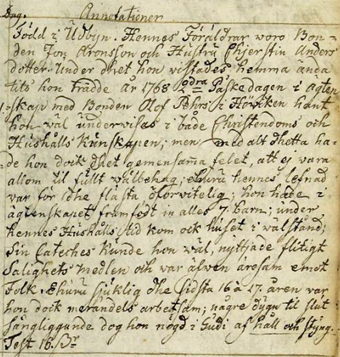 Dag. Annotationer
Född i Utbyn. Hennes Föräldrar woro Bon-
den Jon Aronsson och Hustru Chjerstin Anders
dotter. Under thet hon wistades hemma ända
tils hon trädde År 1768 2dra Påskedagen i Ägten-
skap med Bonden Olof Pehrs: i Höviken hant
hon wäl underwisas i både Christendoms och
Hushålls kunskapen; men med alt thetta ha-
de hon dock thet gemensamma felet, att ej vara
allom til fullt wälbehag, ehuru hennes lefnad
war för the flästa oförvitelig; hon hade i
ägtenskapet främfödt in alles 7 barn; under
hennes Hushålls tid kom ock huset i wälstånd;
Sin Cateches kunde hon wäl, nyttjade flitigt
Salighets medlen och war äfven äresam emot
Folk. Ehuru sjuklig the sidsta 16 à 17 åren war
hon dock merendels arbetsam; några dygn til slut
sängliggande dog hon nögd i Gudi af håll och styng.
Test. 16. Sv.